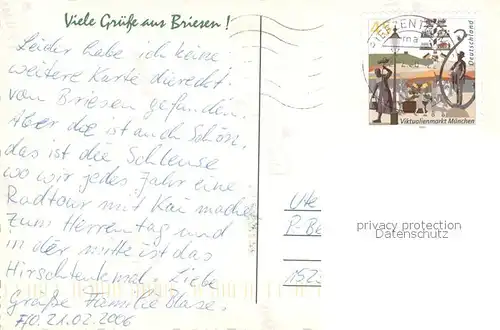 Viele Grüße aus Briesen!
Leider habe ich keine
weitere Karte diereckt
von Briesen gefunden.
Aber die ist auch Schön,
das ist die Schleuse
wo wir jedes Jahr eine
Radtour mit Kai machen
zum Herrentag und
in der mitte ist das
Hirschdenkmal. Liebe
Grüße Familie Blase.
F/O. 21.02.2006
BRIEFZENT
Deutschland
Viktualienmarkt München
Ute
P-Be
152
privacy protection
Datenschutz